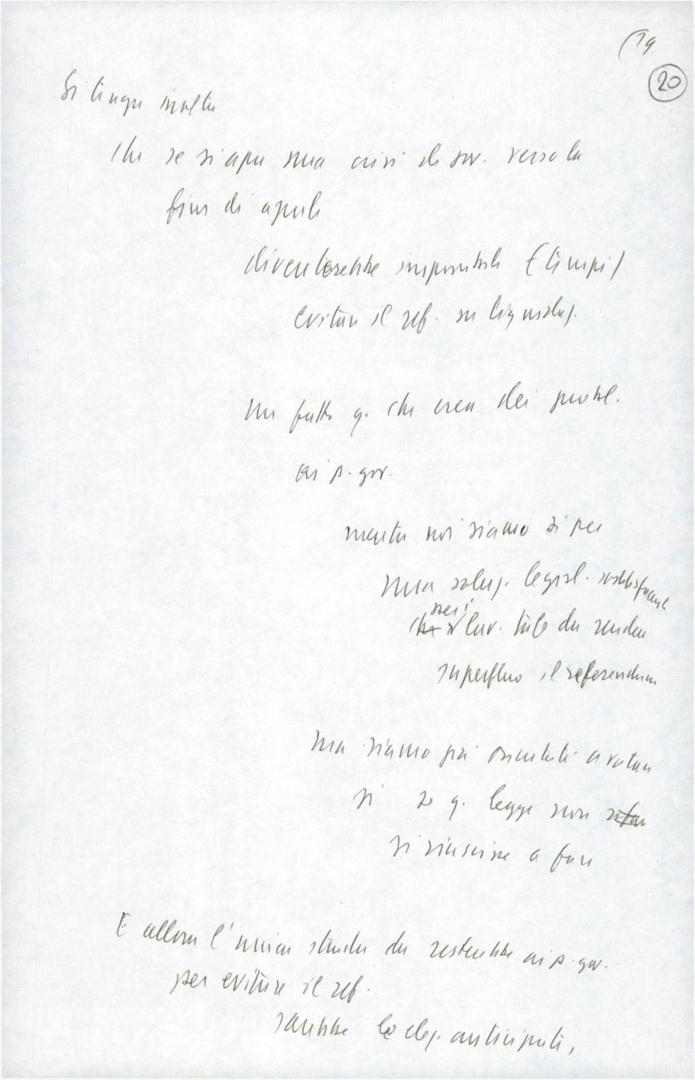 (19
20
Si tenga inoltre
che se si apre una crisi di gov. verso la
fine di aprile
diventerebbe impossibile (tempi)
evitare il ref. su liquidaz.
Un fatto q. che crea dei probl.
ai p. gov.
mentre noi siamo sì per
una soluz. legisl. soddisfacente
per i lav. tale da rendere
superfluo il referendum
ma siamo poi orientati a votare
sì se q. legge non
si riuscisse a fare
E allora l'unica strada che resterebbe ai p. gov.
per evitare il ref.
sarebbe le elez. anticipate,